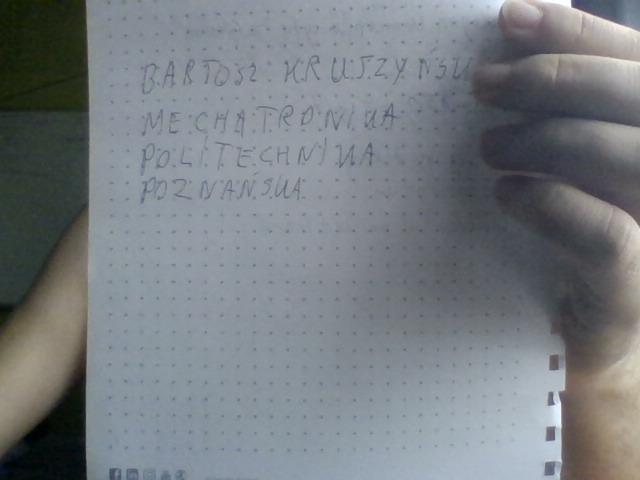 BARTOSZ KRUSZYŃSKI
MECHATRONIKA
POLITECHNIKA
POZNAŃSKA